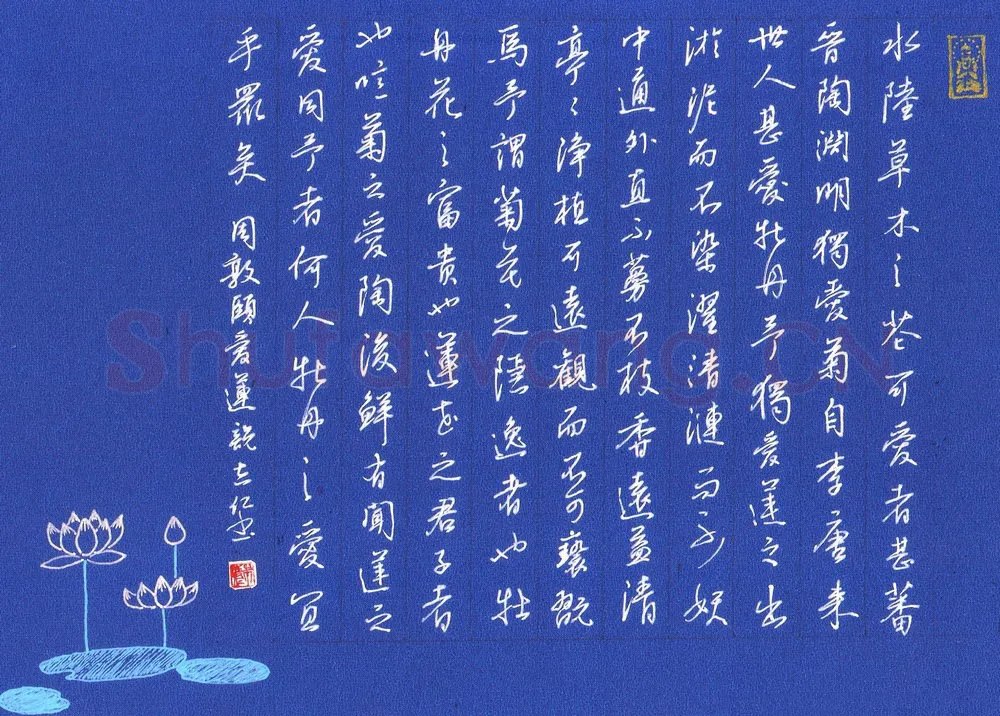 水陸草木之花可愛者甚蕃
晉陶淵明獨愛菊自李唐来
世人甚愛牡丹予獨愛蓮之出
淤泥而不染濯清漣而不妖
中通外直不蔓不枝香遠益清
亭々淨植可遠觀而不可褻翫
焉予謂菊花之隱逸者也牡
丹花之富貴也蓮花之君子者
也噫菊之愛陶後鮮有聞蓮之
愛同予者何人牡丹之愛宜
乎眾矣 周敦頤愛蓮說
Shufawang.CN